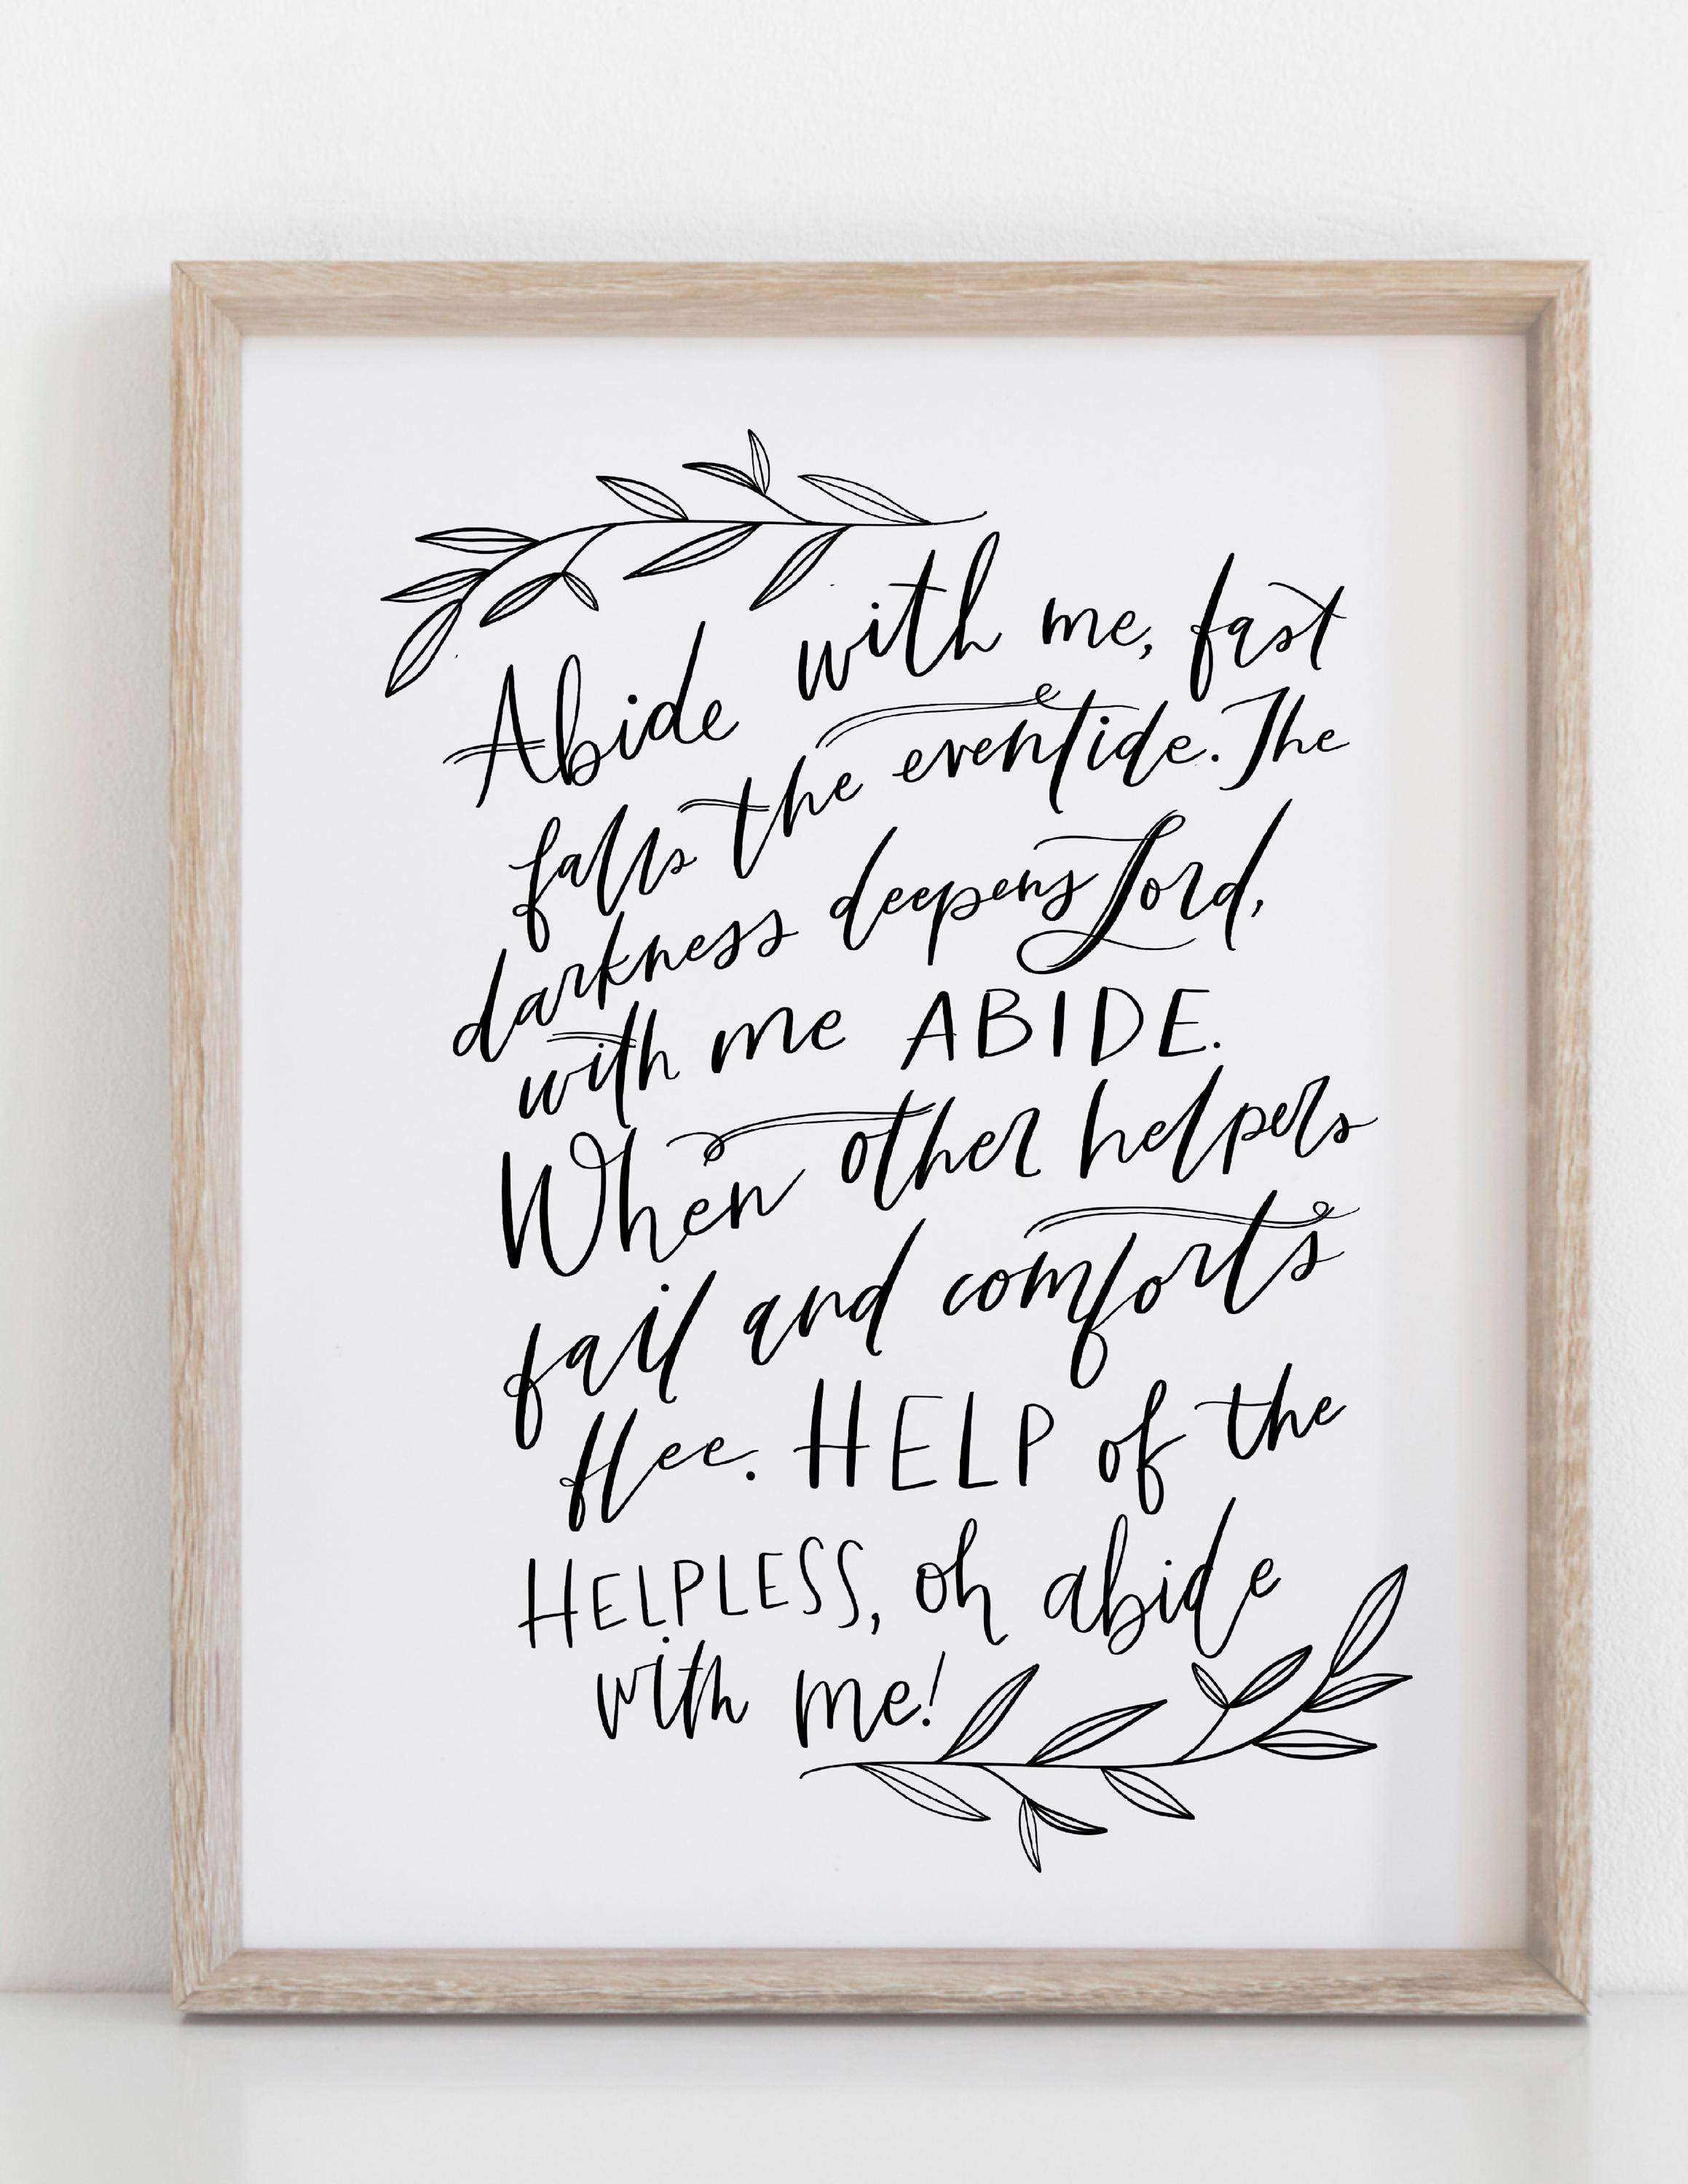 Abide with me, fast
falls the eventide. The
darkness deepens Lord,
with me ABIDE.
When other helpers
fail and comforts
flee. HELP of the
HELPLESS, oh abide
with me!